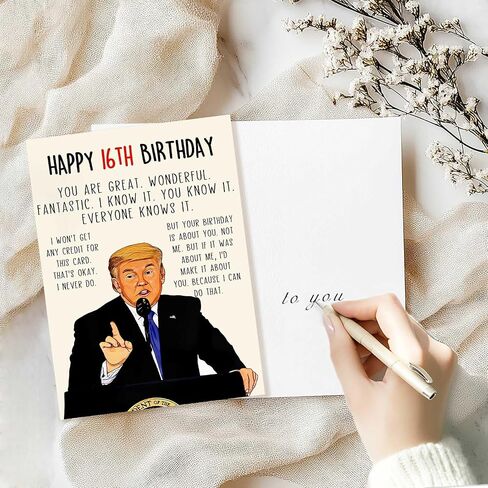 HAPPY 16TH BIRTHDAY
YOU ARE GREAT. WONDERFUL.
FANTASTIC. I KNOW IT. YOU KNOW IT.
EVERYONE KNOWS IT.
I WON'T GET
ANY CREDIT FOR
THIS CARD.
THAT'S OKAY.
I NEVER DO.
BUT YOUR BIRTHDAY
IS ABOUT YOU, NOT
ME, BUT IF IT WAS
ABOUT ME, I'D
MAKE IT ABOUT
YOU. BECAUSE I CAN
DO THAT.
ENT OF THE
to you